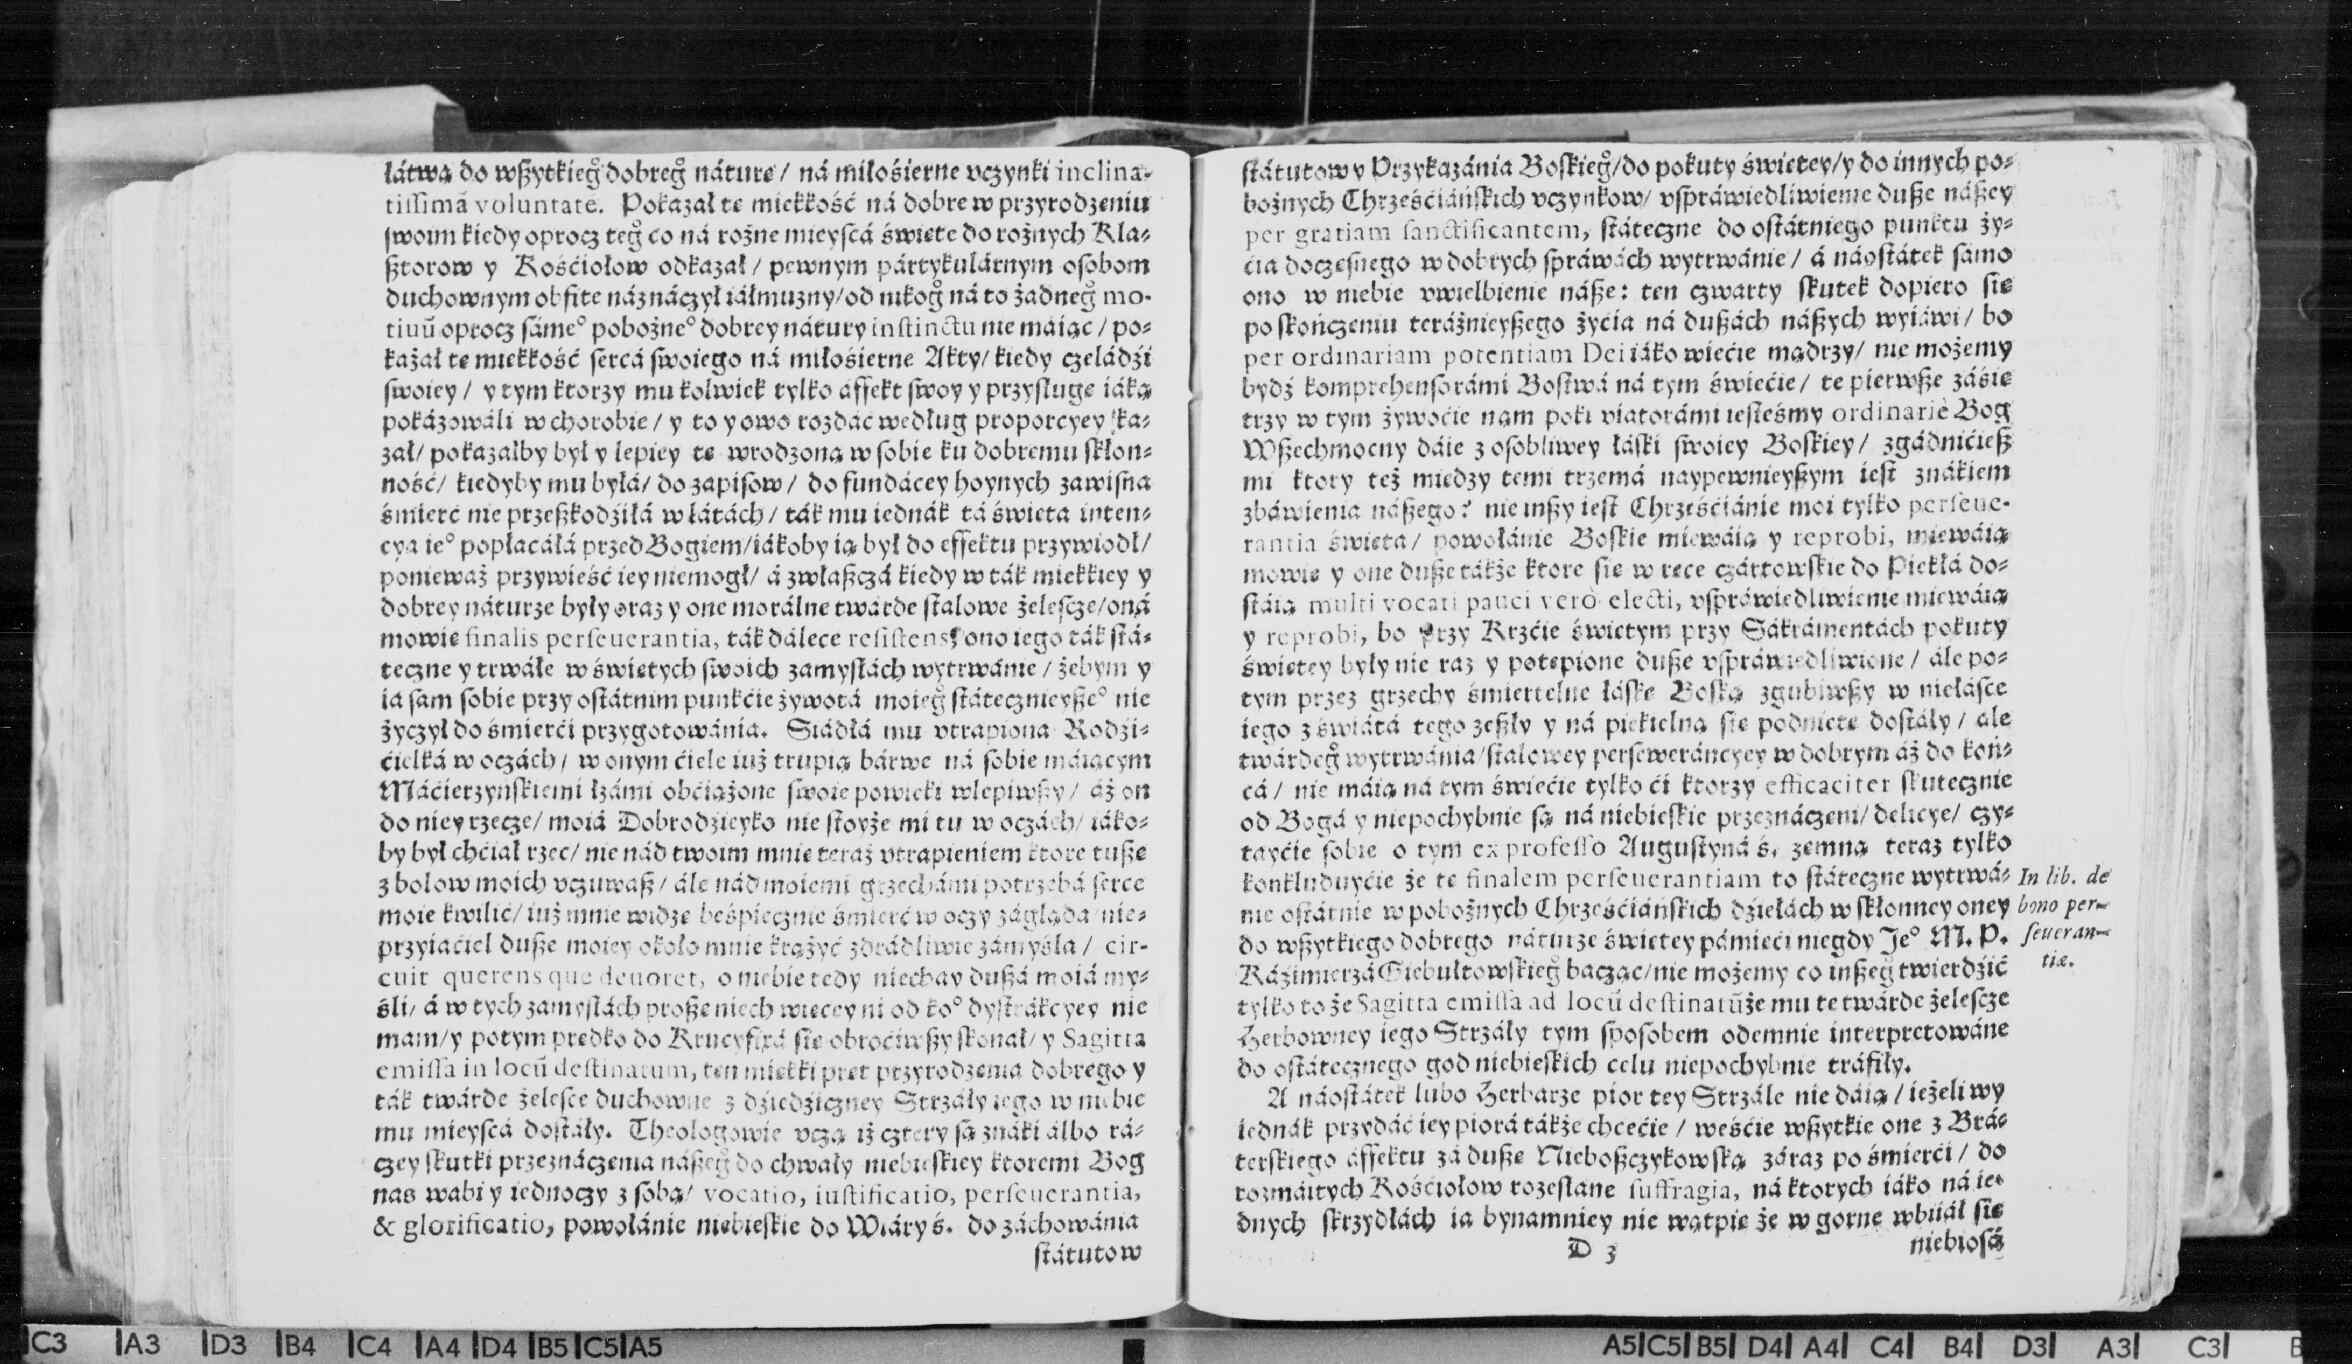 łátwą do wßytkieg̊ dobreg̊ náturę/ ná miłośierne vczynki inclina-
tiſſimā voluntate. Pokazał tę miękkość ná dobre w przyrodzeniu
ſwoim kiedy oprocz teg̊ co ná rożne mieyſcá święte do rożnych Kla-
ßtorow y Kośćiołow odkazał/ pewnym pártykulárnym oſobom
duchownym obfite náznáczył iáłmużny/ od nikog̊ ná to żadneg̊ mo-
tiuū oprocz ſáme° pobożne° dobrey nátury inſtinctu nie máiąc/ po-
każał tę miękkość ſercá ſwoiego ná miłośierne Akty/ kiedy czeládźi
ſwoiey/ y tym ktorzy mu kolwiek tylko áffekt ſwoy y przyſługę iáką
pokázowáli w chorobie/ y to y owo rozdáć według proporcyey ka-
zał/ pokazałby był y lepiey tę wrodzoną w ſobie ku dobremu skłon-
ność/ kiedyby mu byłá/ do zapiſow/ do fundácey hoynych zawiſna
śmierć nie przeßkodźiłá w látách/ ták mu iednák tá święta inten-
cya ie° popłacáłá przed Bogiem/ iákoby ią był do effektu przywiodł/
ponieważ przywieść iey niemogł/ á zwłaßczá kiedy w ták miękkiey y
dobrey náturze były oraz y one morálne twárde ſtalowe żeleſcze/ oná
mowię finalis perſeuerantia, ták dálece reſiſtens, ono iego ták ſtá-
teczne y trwáłe w świętych ſwoich zamyſłách wytrwánie/ żebym y
ia ſam ſobie przy oſtátnim punkćie żywotá moieg̊ ſtátecznieyße° nie
życzył do śmierći przygotowánia. Siádłá mu vtrapiona Rodźi-
ćielká w oczách/ w onym ćiele iuż trupią bárwę ná ſobie máiącym
Máćierzyńskiemi łzámi obćiążone ſwoie powieki wlepiwßy/ áż on
do niey rzecze/ moiá Dobrodźieyko nie ſtoyże mi tu w oczách/ iáko-
by był chćiał rzec/ nie nád twoim mnie teraz vtrapieniem ktore tußę
z bolow moich vczuwaß/ ále nád moiemi grzechámi potrzebá ſerce
moie kwilić/ iuż mnie widzę beśpiecznie śmierć w oczy zágląda/ nie-
przyiaćiel dußę moiey około mnie krążyć zdrádliwie zámyśla/ cir-
cuit querens que deuoret, o niebie tedy niechay dußá moiá my-
śli/ á w tych zamyſłách proßę niech więcey ni od ko° dyſtrákcyey nie
mam/ y potym prędko do Krucyfixá się obroćiwßy skonał/ y Sagitta
emiſſa in locū deſtinatum, ten miękki pręt przyrodzenia dobrego y
ták twárde żeleſce duchowne z dźiedźiczney Strzáły iego w niebie
mu mieyſcá doſtáły. Theologowie vczą iż cztery ſą znáki álbo rá-
czey skutki przeznáczenia náßeg̊ do chwały niebieskiey ktoremi Bog
nas wabi y iednoczy z ſobą/ vocatio, iuſtificatio, perſeuerantia,
& glorificatio, powołánie niebieskie do Wiáry ś. do záchowánia
ſtátutow
ſtátutow y Przykazánia Boskieg̊/ do pokuty świętey/ y do innych po-
bożnych Chrześćiáńskich vczynkow/ vſpráwiedliwienie dußę náßey
per gratiam ſanctificantem, ſtáteczne do oſtátniego punktu ży-
ćia doczeſnego w dobrych ſpráwách wytrwánie/ á náoſtátek ſámo
ono w niebie vwielbienie náße: ten czwarty skutek dopiero się
po skończeniu teráźnieyßego żyćia ná dußách náßych wyiáwi/ bo
per ordinariam potentiam Dei iáko wiećie mądrzy/ nie możemy
bydź komprehenſorámi Boſtwá ná tym świećie/ te pierwße záśię
trzy w tym żywoćie nam poki viatorámi ieſteśmy ordinariè Bog
Wßechmocny dáie z oſobliwey łáski ſwoiey Boskiey/ zgádnićieß
mi ktory też między temi trzemá naypewnieyßym ieſt znákiem
zbáwienia náßego? nie inßy ieſt Chrześćiánie moi tylko perſeue-
rantia święta/ powołánie Boskie miewáią y reprobi, miewáią
mowię y one duße tákże ktore się w ręce czártowskie do Piekłá do-
ſtáią multi vocati pauci verò electi, vſpráwiedliwienie miewáią
y reprobi, bo przy Krzćie świętym przy Sákrámentách pokuty
świętey były nie raz y potępione duße vſpráwiedliwione/ ále po-
tym przez grzechy śmiertelne łáskę Boską zgubiwßy w niełáſce
iego z świátá tego zeßły y ná piekielną się podnietę doſtáły/ ale
twárdeg̊ wytrwánia/ ſtalowey perſeweráncyey w dobrym áż do koń-
cá/ nie máią ná tym świećie tylko ći ktorzy efficaciter skutecznie
od Bogá y niepochybnie ſą ná niebieskie przeznáczeni/ delicye/ czy-
tayćie ſobie o tym ex profeſſo Auguſtyná ś. zemną teraz tylko
konkluduyćie że tę finalem perſeuerantiam to ſtáteczne wytrwá-
nie oſtátnie w pobożnych Chrześćiáńskich dźiełách w skłonney oney
do wßytkiego dobrego náturze świętey pámięći niegdy Je° M. P.
Káźimierzá Siebultowskieg̊ bacząc/ nie możemy co inßeg̊ twierdźić
tylko to że Sagitta emiſſa ad locū deſtinatū że mu te twárde żeleſcze
Herbowney iego Strzáły tym ſpoſobem odemnie interpretowáne
do oſtátecznego god niebieskich celu niepochybnie tráfiły.
A náoſtátek lubo Herbarze pior tey Strzále nie dáią/ ieżeli wy
iednák przydáć iey piorá tákże chcećie/ weśćie wßytkie one z Brá-
terskiego áffektu zá dußę Nieboßczykowską záraz po śmierći/ do
rozmáitych Kośćiołow rozeſłane ſuffragia, ná ktorych iáko ná ie-
dnych skrzydłách ia bynamniey nie wątpię że w gorne wbiiáł się
D 3
niebioſá
In lib. de
bono per-
ſeueran-
tiæ.
C3 A3 D3 B4 C4 A4 D4 B5 C5 A5
A5 C5 B5 D4 A4 C4 B4 D3 A3 C3